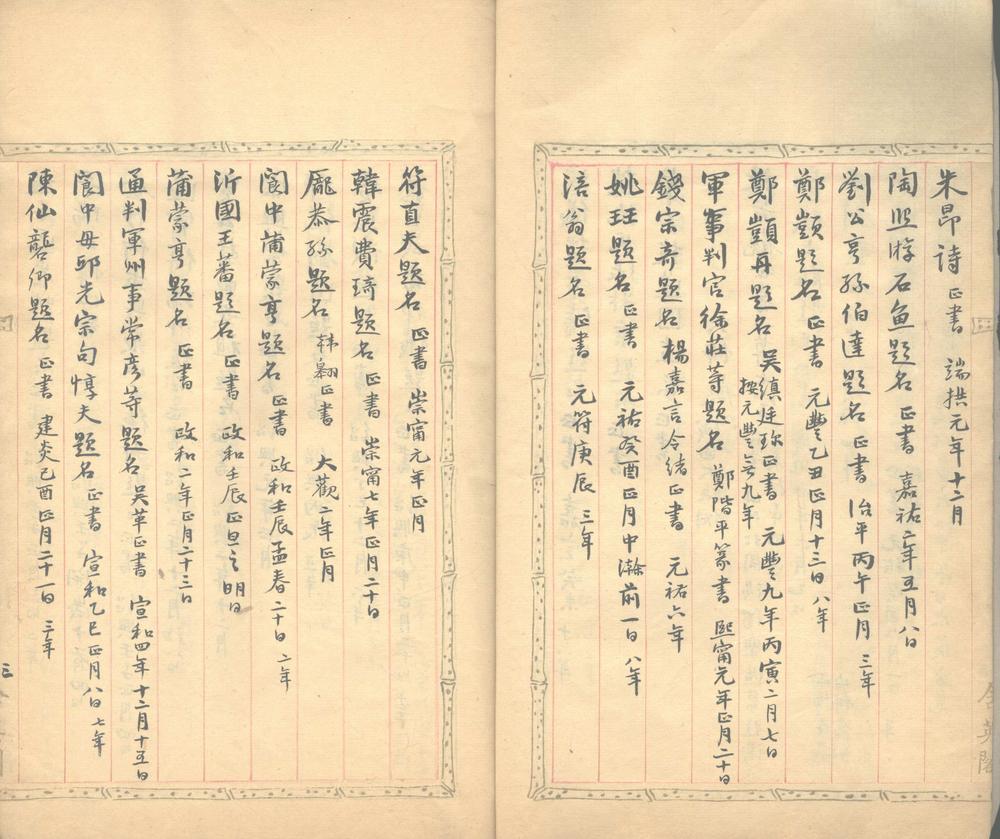 朱昂詩 正書 端拱元年十二月
陶照游石魚題名 正書 嘉祐二年五月八日
劉公亨孫伯達題名 正書 治平丙午正月 三年
鄭顗題名 正書 元豐乙丑正月十三日 八年
鄭顗再題名 吳縝廷珍正書 元豐九年丙寅二月七日
按元豐無九年
軍事判官徐莊等題名 鄭階平篆書 熙甯元年正月二十日
錢宗奇題名 楊嘉言令緒正書 元祐六年
姚珏題名 正書 元祐癸酉正月中澣前一日 八年
涪翁題名 正書 元符庚辰 三年
符直夫題名 正書 崇甯元年正月
韓震費琦題名 正書 崇甯七年正月二十日
龐恭孫題名 韩翱正書 大觀二年正月
閬中蒲蒙亨題名 正書 政和壬辰孟春二十日 二年
沂國王蕃題名 正書 政和壬辰正旦之明日
蒲蒙亨題名 正書 政和二年正月二十三日
通判軍州事常彦等題名 吳革正書 宣和四年十二月十五日
閬中毋邱光宗句惇夫題名 正書 宣和乙巳正月八日 七年
陳仙題名 正書 建炎己酉正月二十一日 三年
三